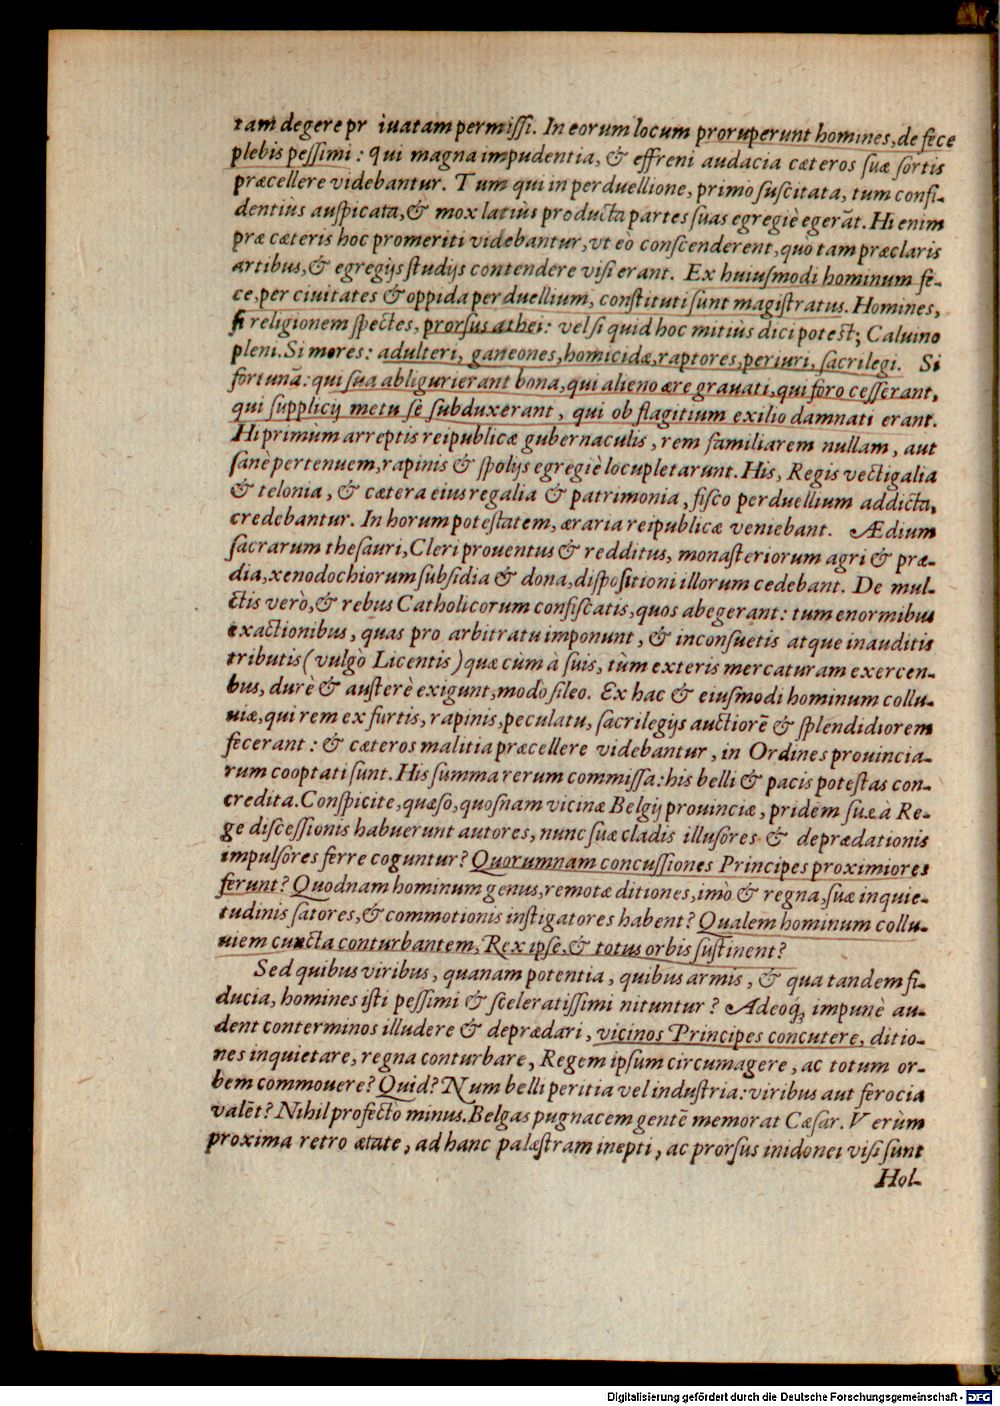 tam degere pr iuatam permiſſi. In eorum locum proruperunt homines, de fece
plebis peſſimi: qui magna impudentia, & effreni audacia cæteros ſuæ ſortis
præcellere videbantur. Tum qui in perduellione, primò ſuſcitata, tum confi-
dentiùs auſpicata, & mox latiùs producta partes ſuas egregiè egerāt. Hi enim
præ cæteris hoc promeriti videbantur, vt eò conſcenderent, quo tam præclaris
artibus, & egregijs ſtudijs contendere viſi erant. Ex huiuſmodi hominum fe-
ce, per ciuitates & oppida perduellium, conſtituti ſunt magiſtratus. Homines,
ſi religionem ſpectes, prorſus athei: vel ſi quid hoc mitiùs dici poteſt; Caluino
pleni. Si mores: adulteri, ganeones, homicidæ, raptores, periuri, ſacrilegi. Si
fortunā: qui ſua abligurierant bona, qui alieno ære grauati, qui foro ceſſerant,
qui ſupplicij metu ſe ſubduxerant, qui ob flagitium exilio damnati erant.
Hi primùm arreptis reipublicæ gubernaculis, rem familiarem nullam, aut
ſanè pertenuem, rapinis & ſpolijs egregiè locupletarunt. His, Regis vectigalia
& telonia, & cætera eius regalia & patrimonia, fiſco perduellium addicta,
credebantur. In horum poteſtatem, æraria reipublicæ veniebant. Ædium
ſacrarum theſauri, Cleri prouentus & redditus, monaſteriorum agri & præ-
dia, xenodochiorum ſubſidia & dona, diſpoſitioni illorum cedebant. De mul-
ctis verò, & rebus Catholicorum confiſcatis, quos abegerant: tum enormibus
exactionibus, quas pro arbitratu imponunt, & inconſuetis atque inauditis
tributis (vulgò Licentis) quæ cùm à ſuis, tùm exteris mercaturam exercen-
bus, durè & auſterè exigunt, modò ſileo. Ex hac & eiuſmodi hominum collu-
uiæ, qui rem ex furtis, rapinis, peculatu, ſacrilegijs auctiorē & ſplendidiorem
fecerant: & cæteros malitia præcellere videbantur, in Ordines prouincia-
rum cooptati ſunt. His ſumma rerum commiſſa: his belli & pacis poteſtas con-
credita. Conſpicite, quæſo, quoſnam vicinæ Belgij prouinciæ, pridem ſuæ à Re-
ge diſceſſionis habuerunt autores, nunc ſuæ cladis illuſores & deprædationis
impulſores ferre coguntur? Quorumnam concuſſiones Principes proximiores
ferunt? Quodnam hominum genus, remotæ ditiones, imò & regna, ſuæ inquie-
tudinis ſatores, & commotionis inſtigatores habent? Qualem hominum collu-
uiem cuncta conturbantem, Rex ipſe, & totus orbis ſuſtinent?
Sed quibus viribus, quanam potentia, quibus armis, & qua tandem fi-
ducia, homines iſti peſſimi & ſceleratiſſimi nituntur? Adeoq́; impunè au-
dent conterminos illudere & deprædari, vicinos Principes concutere, ditio-
nes inquietare, regna conturbare, Regem ipſum circumagere, ac totum or-
bem commouere? Quid? Num belli peritia vel induſtria: viribus aut ferocia
valēt? Nihil profecto minus. Belgas pugnacem gentē memorat Cæſar. Verùm
proxima retro ætate, ad hanc palæſtram inepti, ac prorſus inidonei viſi ſunt
Hol-
Digitalisierung gefördert durch die Deutsche Forschungsgemeinschaft - DFG